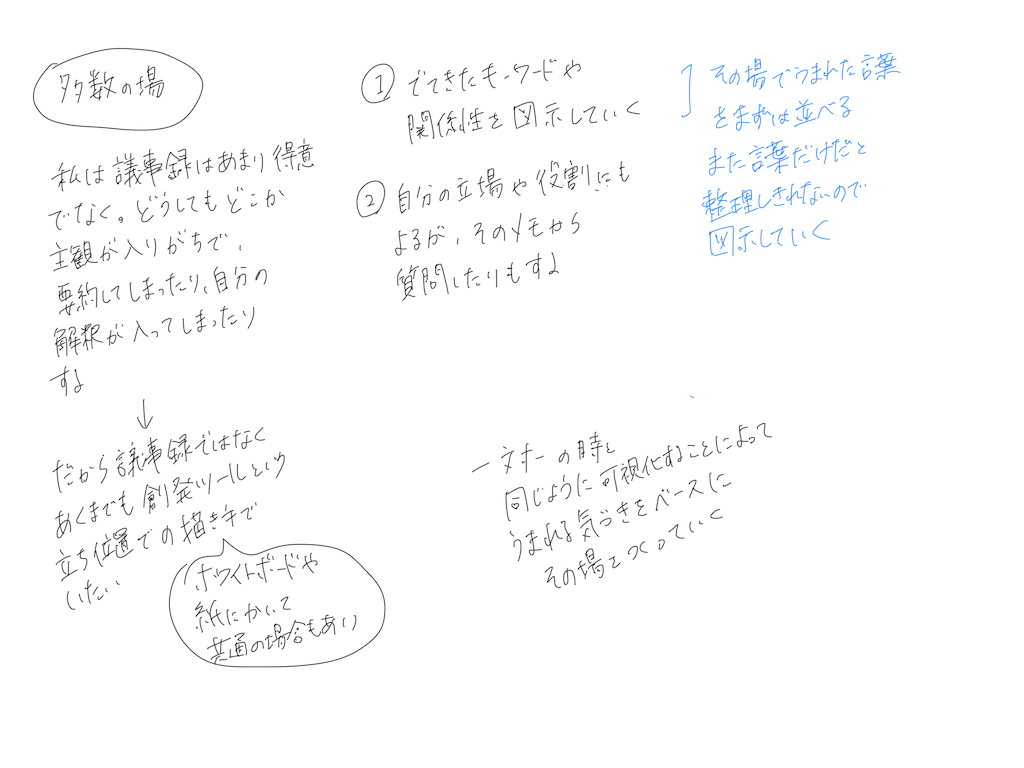 多数の場
私は議事録はあまり得意
でなく。どうしてもどこか
主観が入りがちで、
要約してしまったり、自分の
解釈が入ってしまったり
する
↓
だから議事録ではなく
あくまでも創発ツールという
立ち位置での描き手で
いたい
ホワイトボードや
紙にかいて
共通の場合もあり
① でてきたキーワードや
関係性を図示していく
② 自分の立場や役割にも
よるが、そのメモから
質問したりもする
その場でうまれた言葉
をまずは並べる
また言葉だけだと
整理しきれないので
図示していく
一対一の時と
同じように可視化することによって
うまれる気づきをベースに
その場をつくっていく